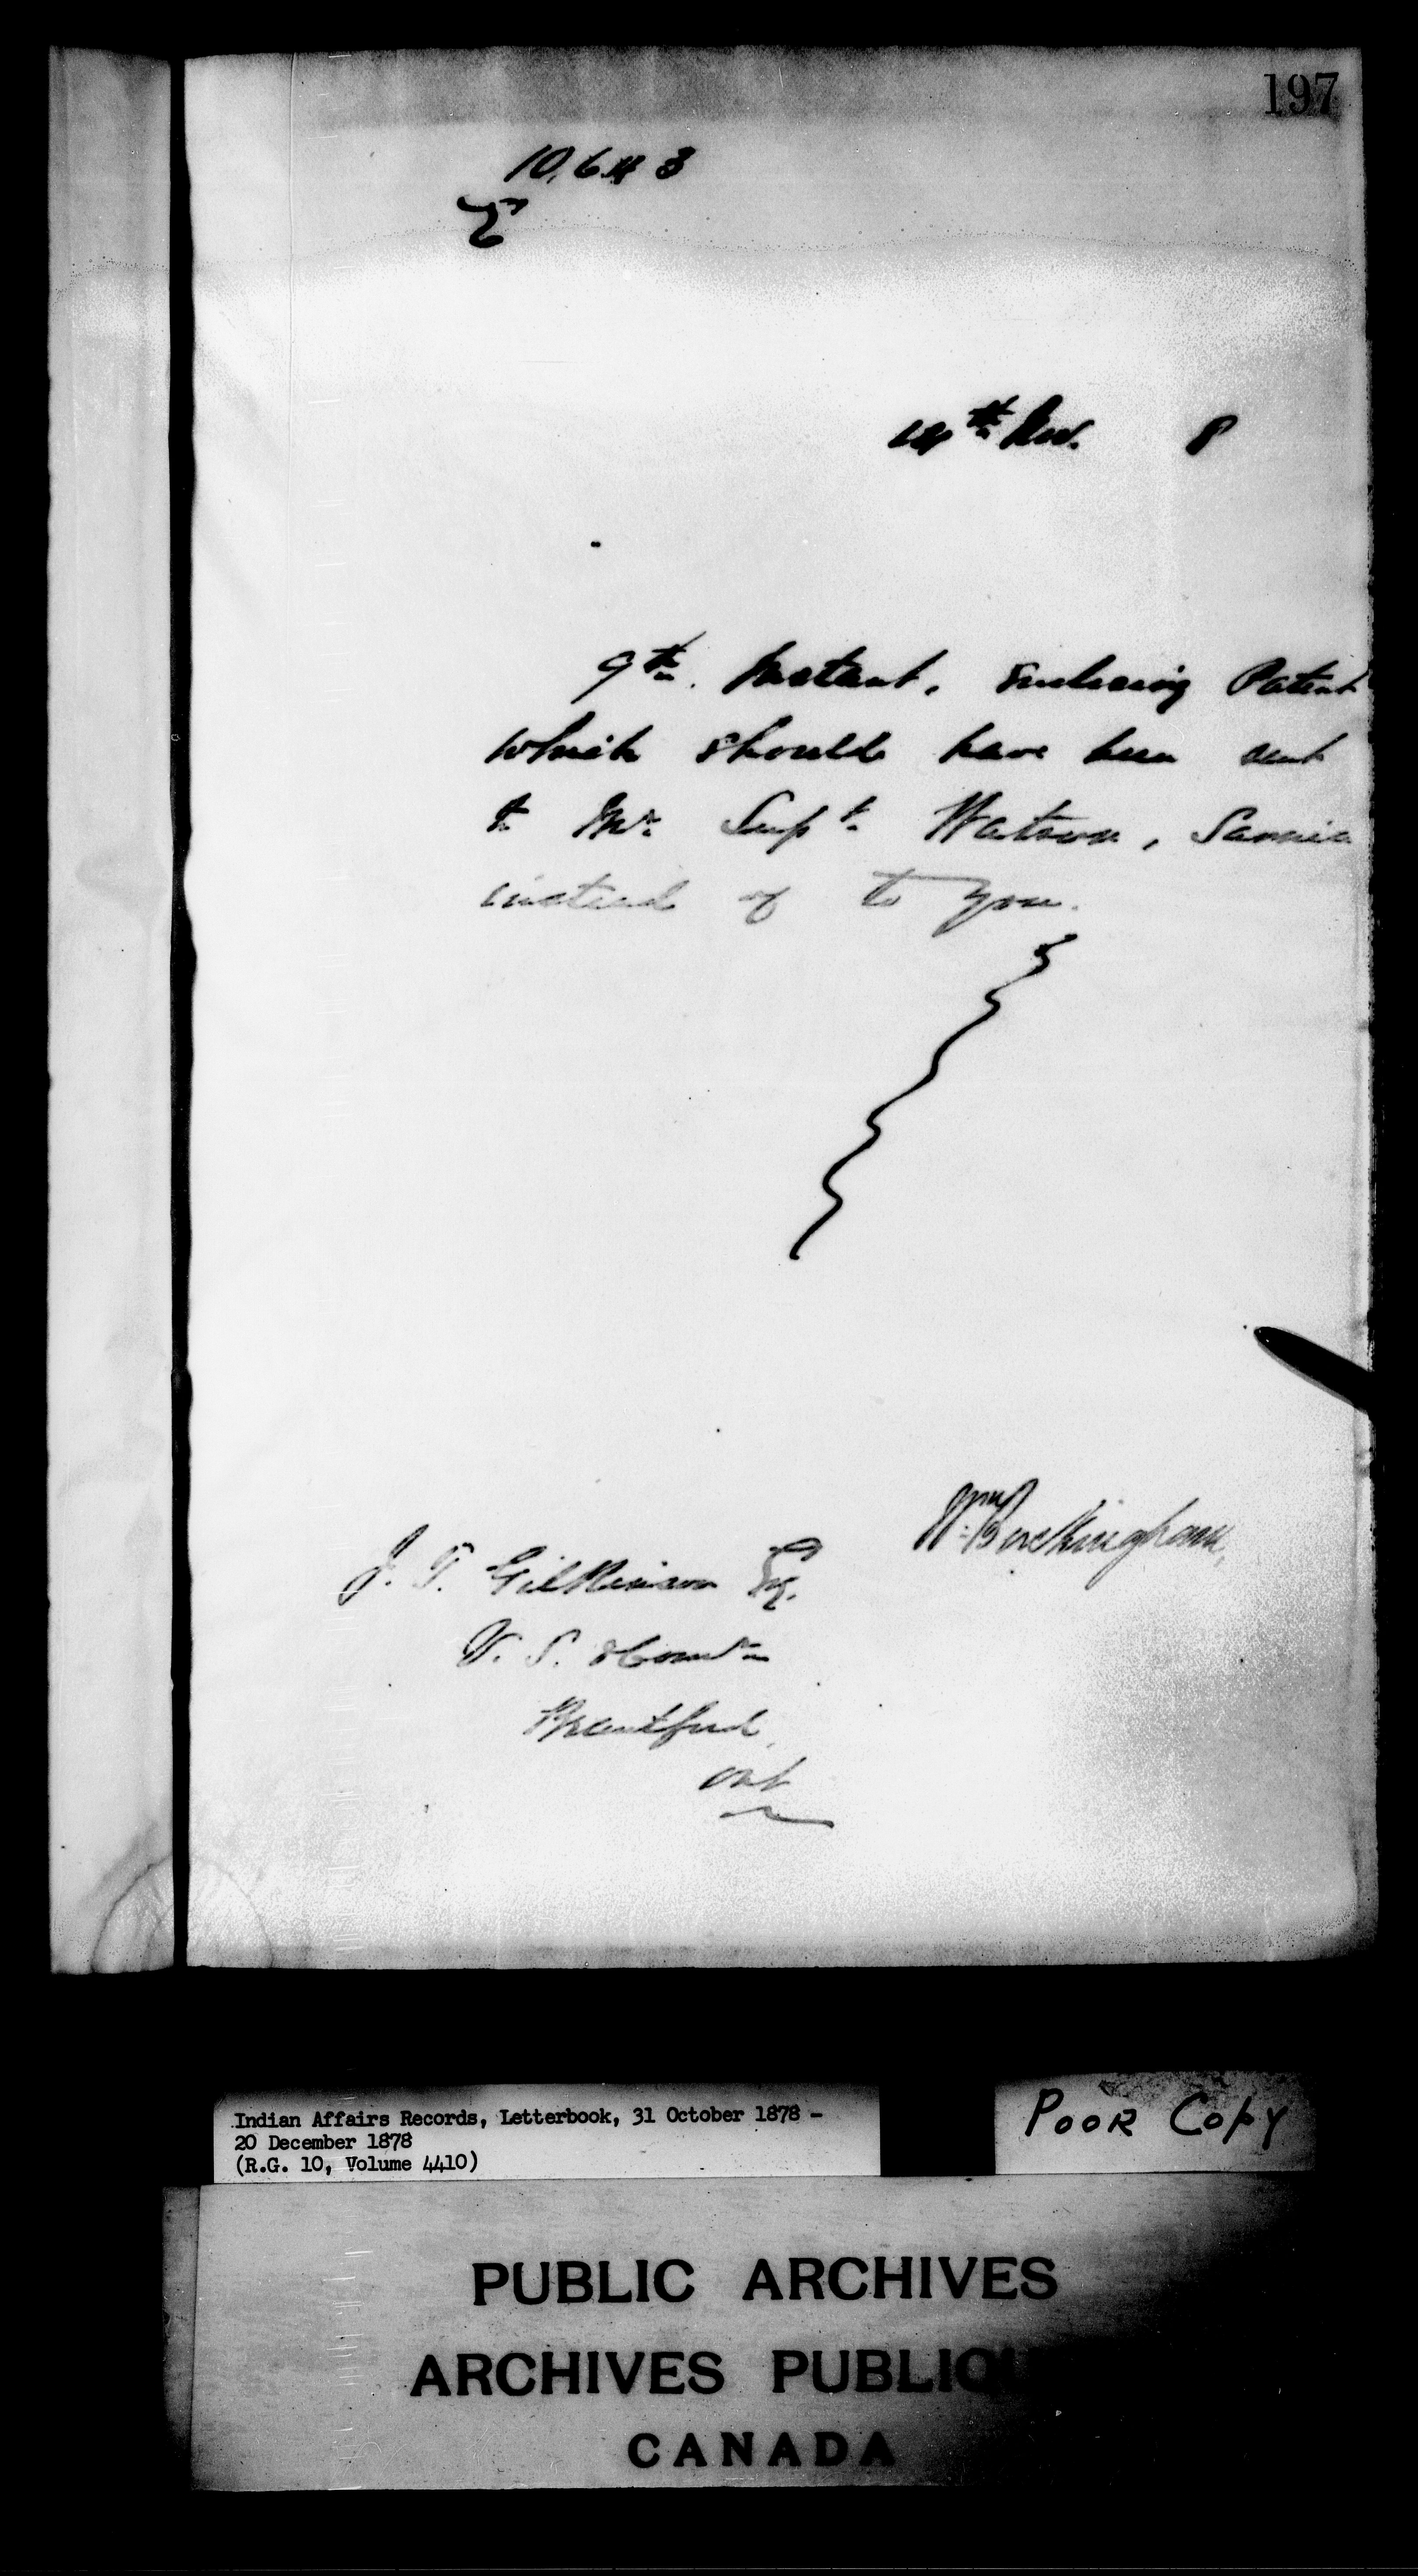 197
10,643
14th Nov. 8
9th Instant, enclosing Patent
which should have been sent
to Mr. Supt. Watson, Sarnia
instead of to you.
Wm Buckingham
J. T. Gilkison Esq.
V. S. & Comr
Brantford,
Ont
Indian Affairs Records, Letterbook, 31 October 1878 -
20 December 1878
(R.G. 10, Volume 4410)
POOR COPY
PUBLIC ARCHIVES
ARCHIVES PUBLIQU
CANADA